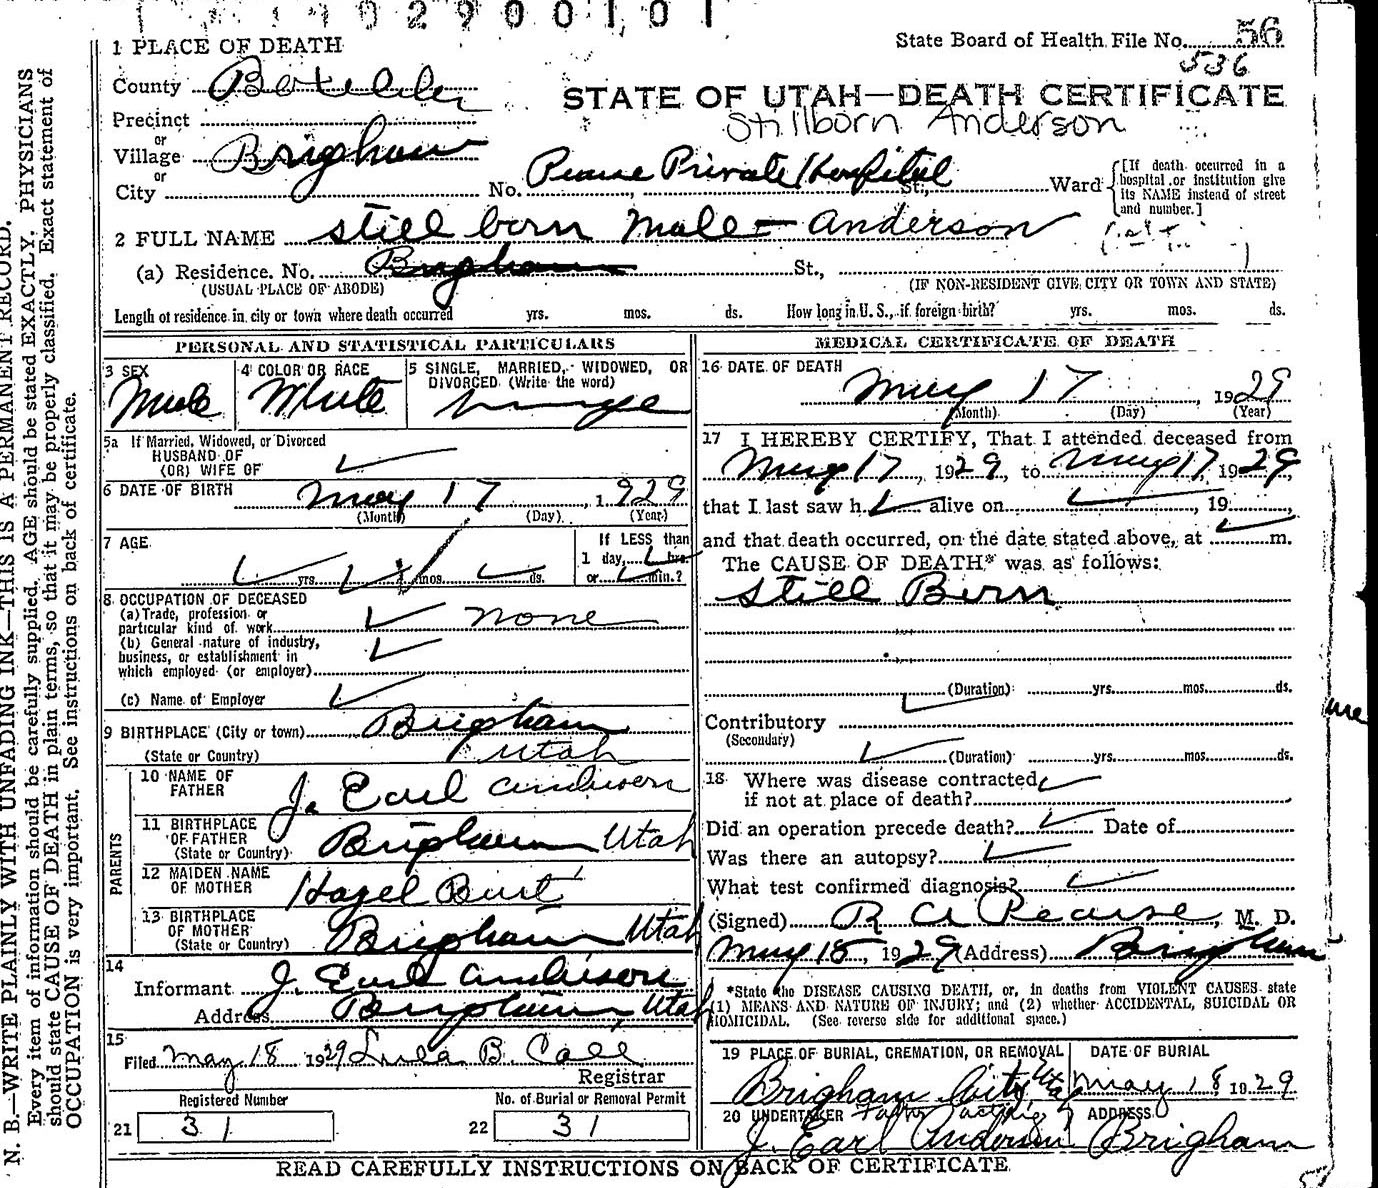 2900101
1 PLACE OF DEATH
State Board of Health File No. 56
536
County Boxelder
STATE OF UTAH—DEATH CERTIFICATE
Precinct
Stillborn Anderson
or
Village Brigham
or
City
No. Pearse Private Hospital St., Ward
[If death occurred in a
hospital or institution give
its NAME instead of street
and number.]
2 FULL NAME still born Male - Anderson
(a) Residence. No. Brigham St.,
(USUAL PLACE OF ABODE) (IF NON-RESIDENT GIVE CITY OR TOWN AND STATE)
Length of residence in city or town where death occurred yrs. mos. ds. How long in U. S., if foreign birth? yrs. mos. ds.
PERSONAL AND STATISTICAL PARTICULARS
3 SEX
Male
4 COLOR OR RACE
White
5 SINGLE, MARRIED, WIDOWED, OR
DIVORCED (Write the word)
single
5a If Married, Widowed, or Divorced
HUSBAND OF
(OR) WIFE OF
6 DATE OF BIRTH May 17, 1929
(Month) (Day) (Year)
7 AGE
yrs. mos. ds.
If LESS than
1 day, hrs.
or min.?
8 OCCUPATION OF DECEASED
(a) Trade, profession or
particular kind of work none
(b) General nature of industry,
business, or establishment in
which employed (or employer)
(c) Name of Employer
9 BIRTHPLACE (City or town) Brigham
(State or Country) Utah
PARENTS
10 NAME OF
FATHER J. Earl Anderson
11 BIRTHPLACE
OF FATHER
(State or Country) Brigham Utah
12 MAIDEN NAME
OF MOTHER Hazel Burt
13 BIRTHPLACE
OF MOTHER
(State or Country) Brigham Utah
14
Informant J. Earl Anderson
Address Brigham, Utah
15
Filed May 18 1929 Lula B. Call
Registrar
Registered Number
21 31
No. of Burial or Removal Permit
22 31
MEDICAL CERTIFICATE OF DEATH
16 DATE OF DEATH
May 17, 1929
(Month) (Day) (Year)
17 I HEREBY CERTIFY, That I attended deceased from
May 17, 1929, to May 17, 1929,
that I last saw h alive on , 19 ,
and that death occurred, on the date stated above, at m.
The CAUSE OF DEATH* was as follows:
Still Born
(Duration) yrs. mos. ds.
Contributory
(Secondary)
(Duration) yrs. mos. ds.
18 Where was disease contracted
if not at place of death?
Did an operation precede death? Date of
Was there an autopsy?
What test confirmed diagnosis?
(Signed) R A Pearse, M. D.
May 18, 1929 (Address) Brigham
*State the DISEASE CAUSING DEATH, or, in deaths from VIOLENT CAUSES state
(1) MEANS AND NATURE OF INJURY; and (2) whether ACCIDENTAL, SUICIDAL OR
HOMICIDAL. (See reverse side for additional space.)
19 PLACE OF BURIAL, CREMATION, OR REMOVAL
Brigham City, Uta
DATE OF BURIAL
May 18 1929
20 UNDERTAKER Father acting
J. Earl Anderson
ADDRESS
Brigham
READ CAREFULLY INSTRUCTIONS ON BACK OF CERTIFICATE
N. B.—WRITE PLAINLY WITH UNFADING INK—THIS IS A PERMANENT RECORD.
Every item of information should be carefully supplied. AGE should be stated EXACTLY. PHYSICIANS
should state CAUSE OF DEATH in plain terms, so that it may be properly classified. Exact statement of
OCCUPATION is very important. See instructions on back of certificate.